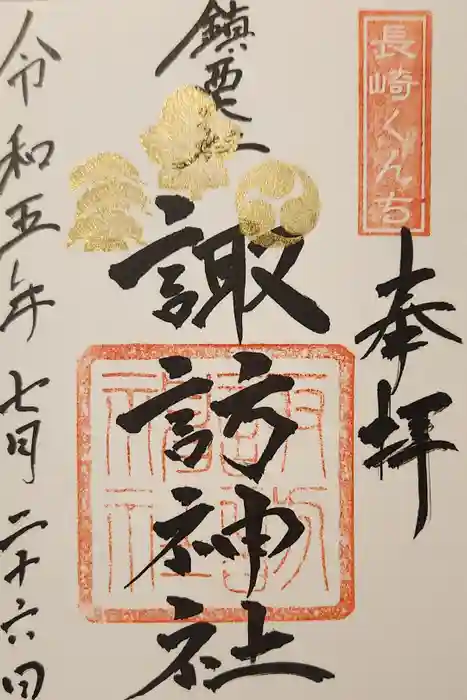 長崎くんち
奉拝
鎮西大社
諏訪神社
諏訪神社
令和五年七月二十六日